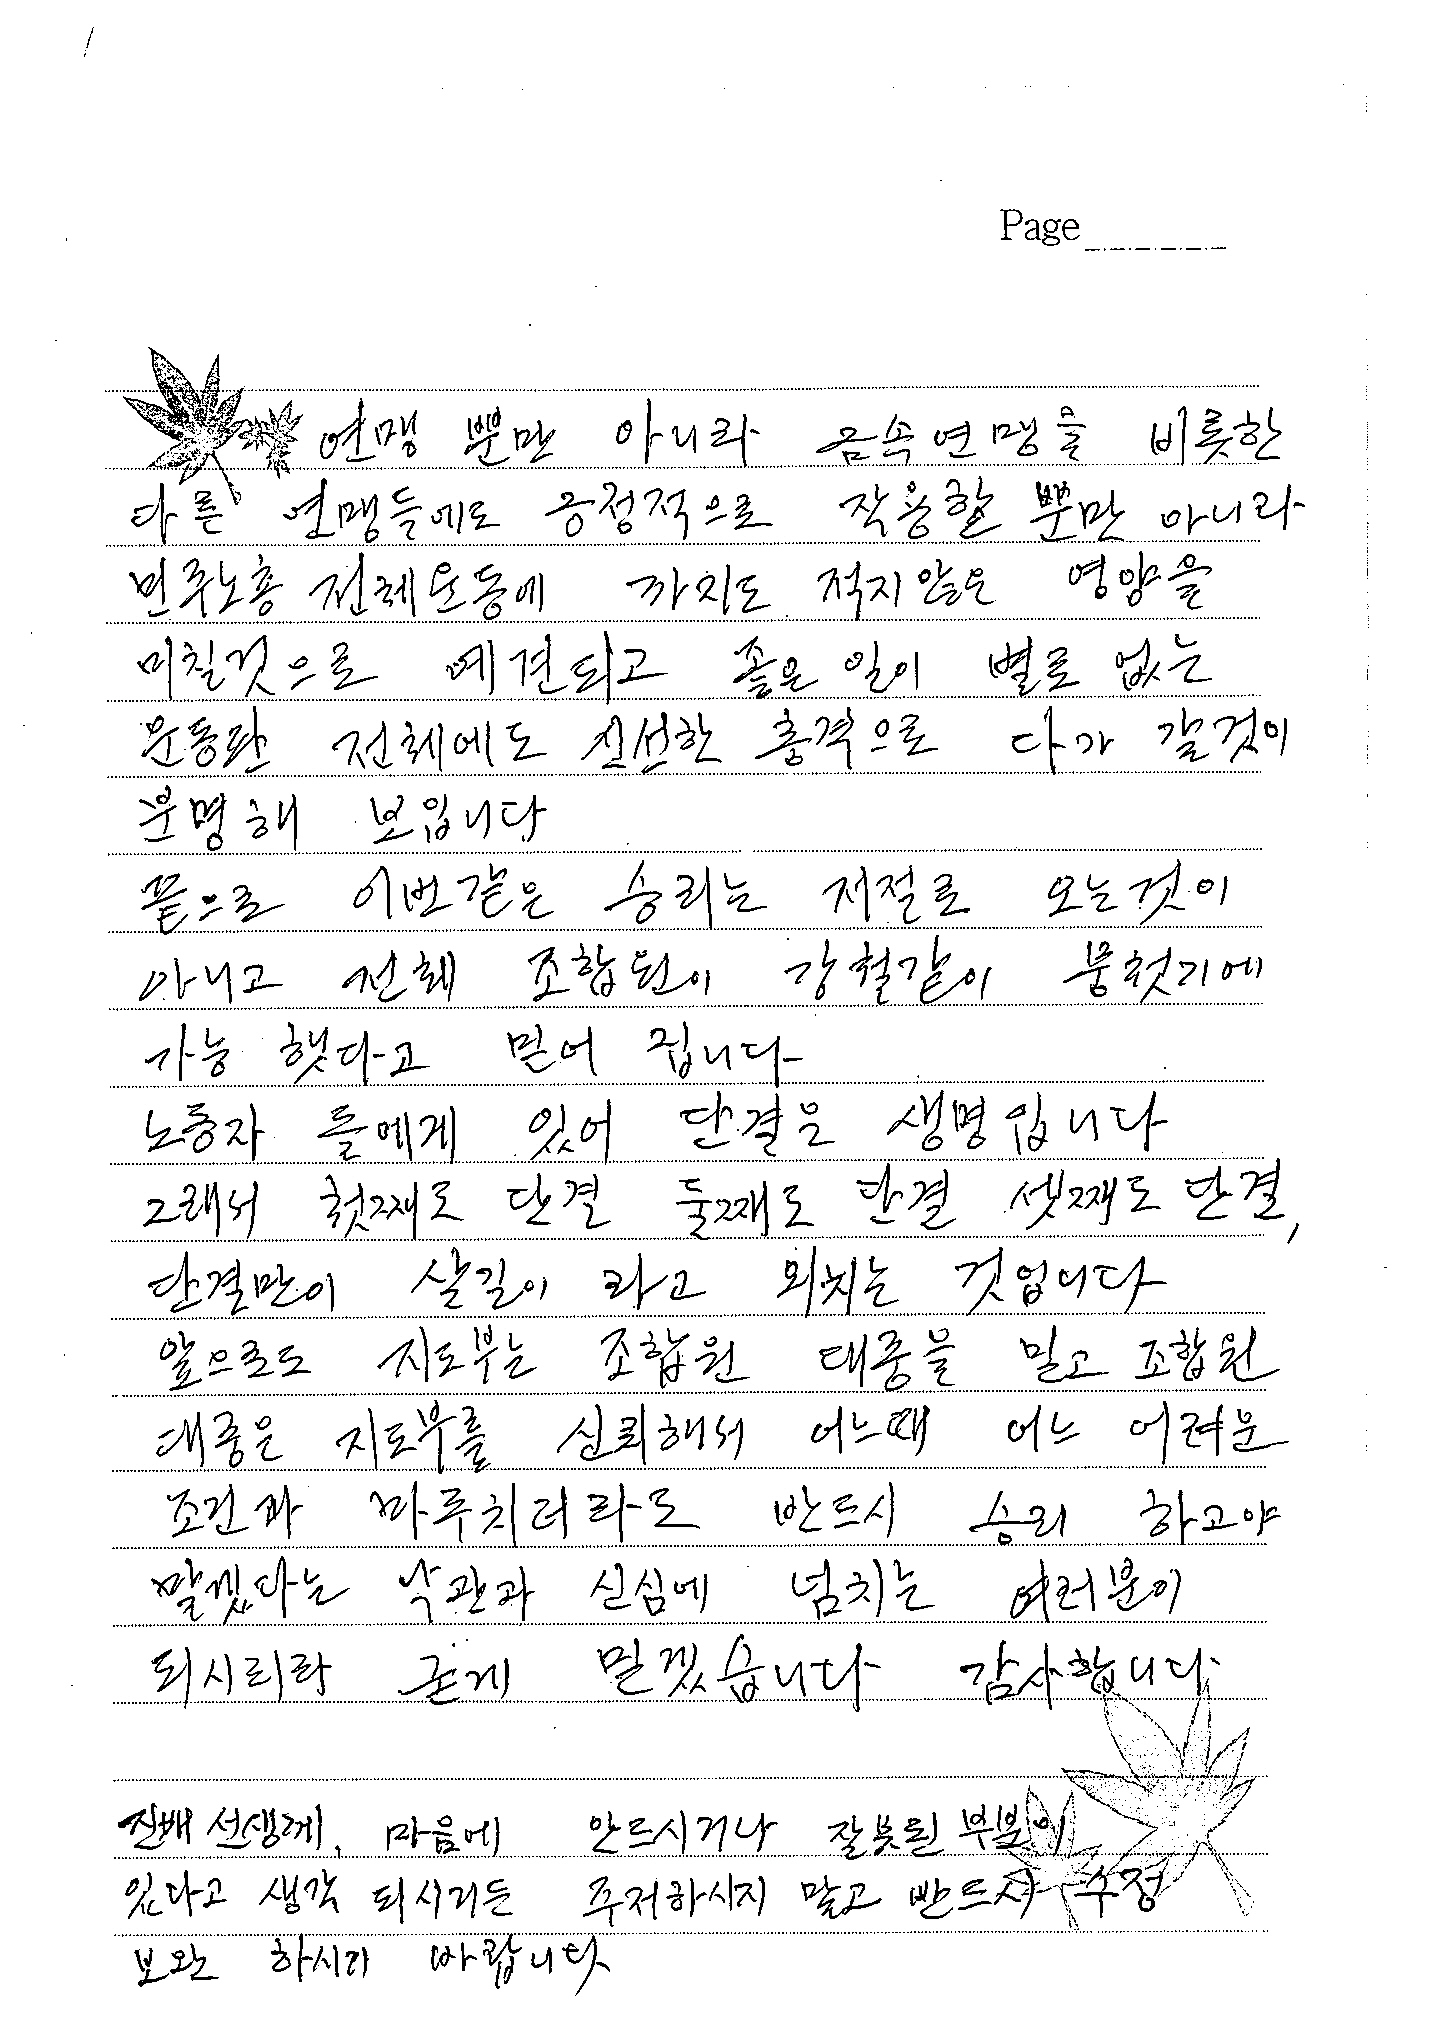 Page
연맹 뿐만 아니라 금속연맹을 비롯한
다른 연맹들에도 긍정적으로 작용할 뿐만 아니라
민주노총 전체운동에 까지도 적지않은 영향을
미칠것으로 예견되고 좋은 일이 별로 없는
운동판 전체에도 신선한 충격으로 다가 갈것이
분명해 보입니다
끝으로 이번같은 승리는 저절로 오는것이
아니고 전체 조합원이 강철같이 뭉첫기에
가능 했다고 믿어 집니다
노동자 들에게 있어 단결은 생명입니다
그래서 첫째도 단결 둘째도 단결 셋째도 단결,
단결만이 살길이 라고 외치는 것입니다
앞으로도 지도부는 조합원 대중을 믿고 조합원
대중은 지도부를 신뢰해서 어느때 어느 어려운
조건과 마루치더라도 반드시 승리 하고야
말겠다는 낙관과 신심에 넘치는 여러분이
되시리라 굳게 믿겠습니다 감사합니다
진배 선생께, 마음에 안드시거나 잘못된 부분이
있다고 생각 되시거든 주저하시지 말고 반드시 수정
보완 하시기 바랍니다